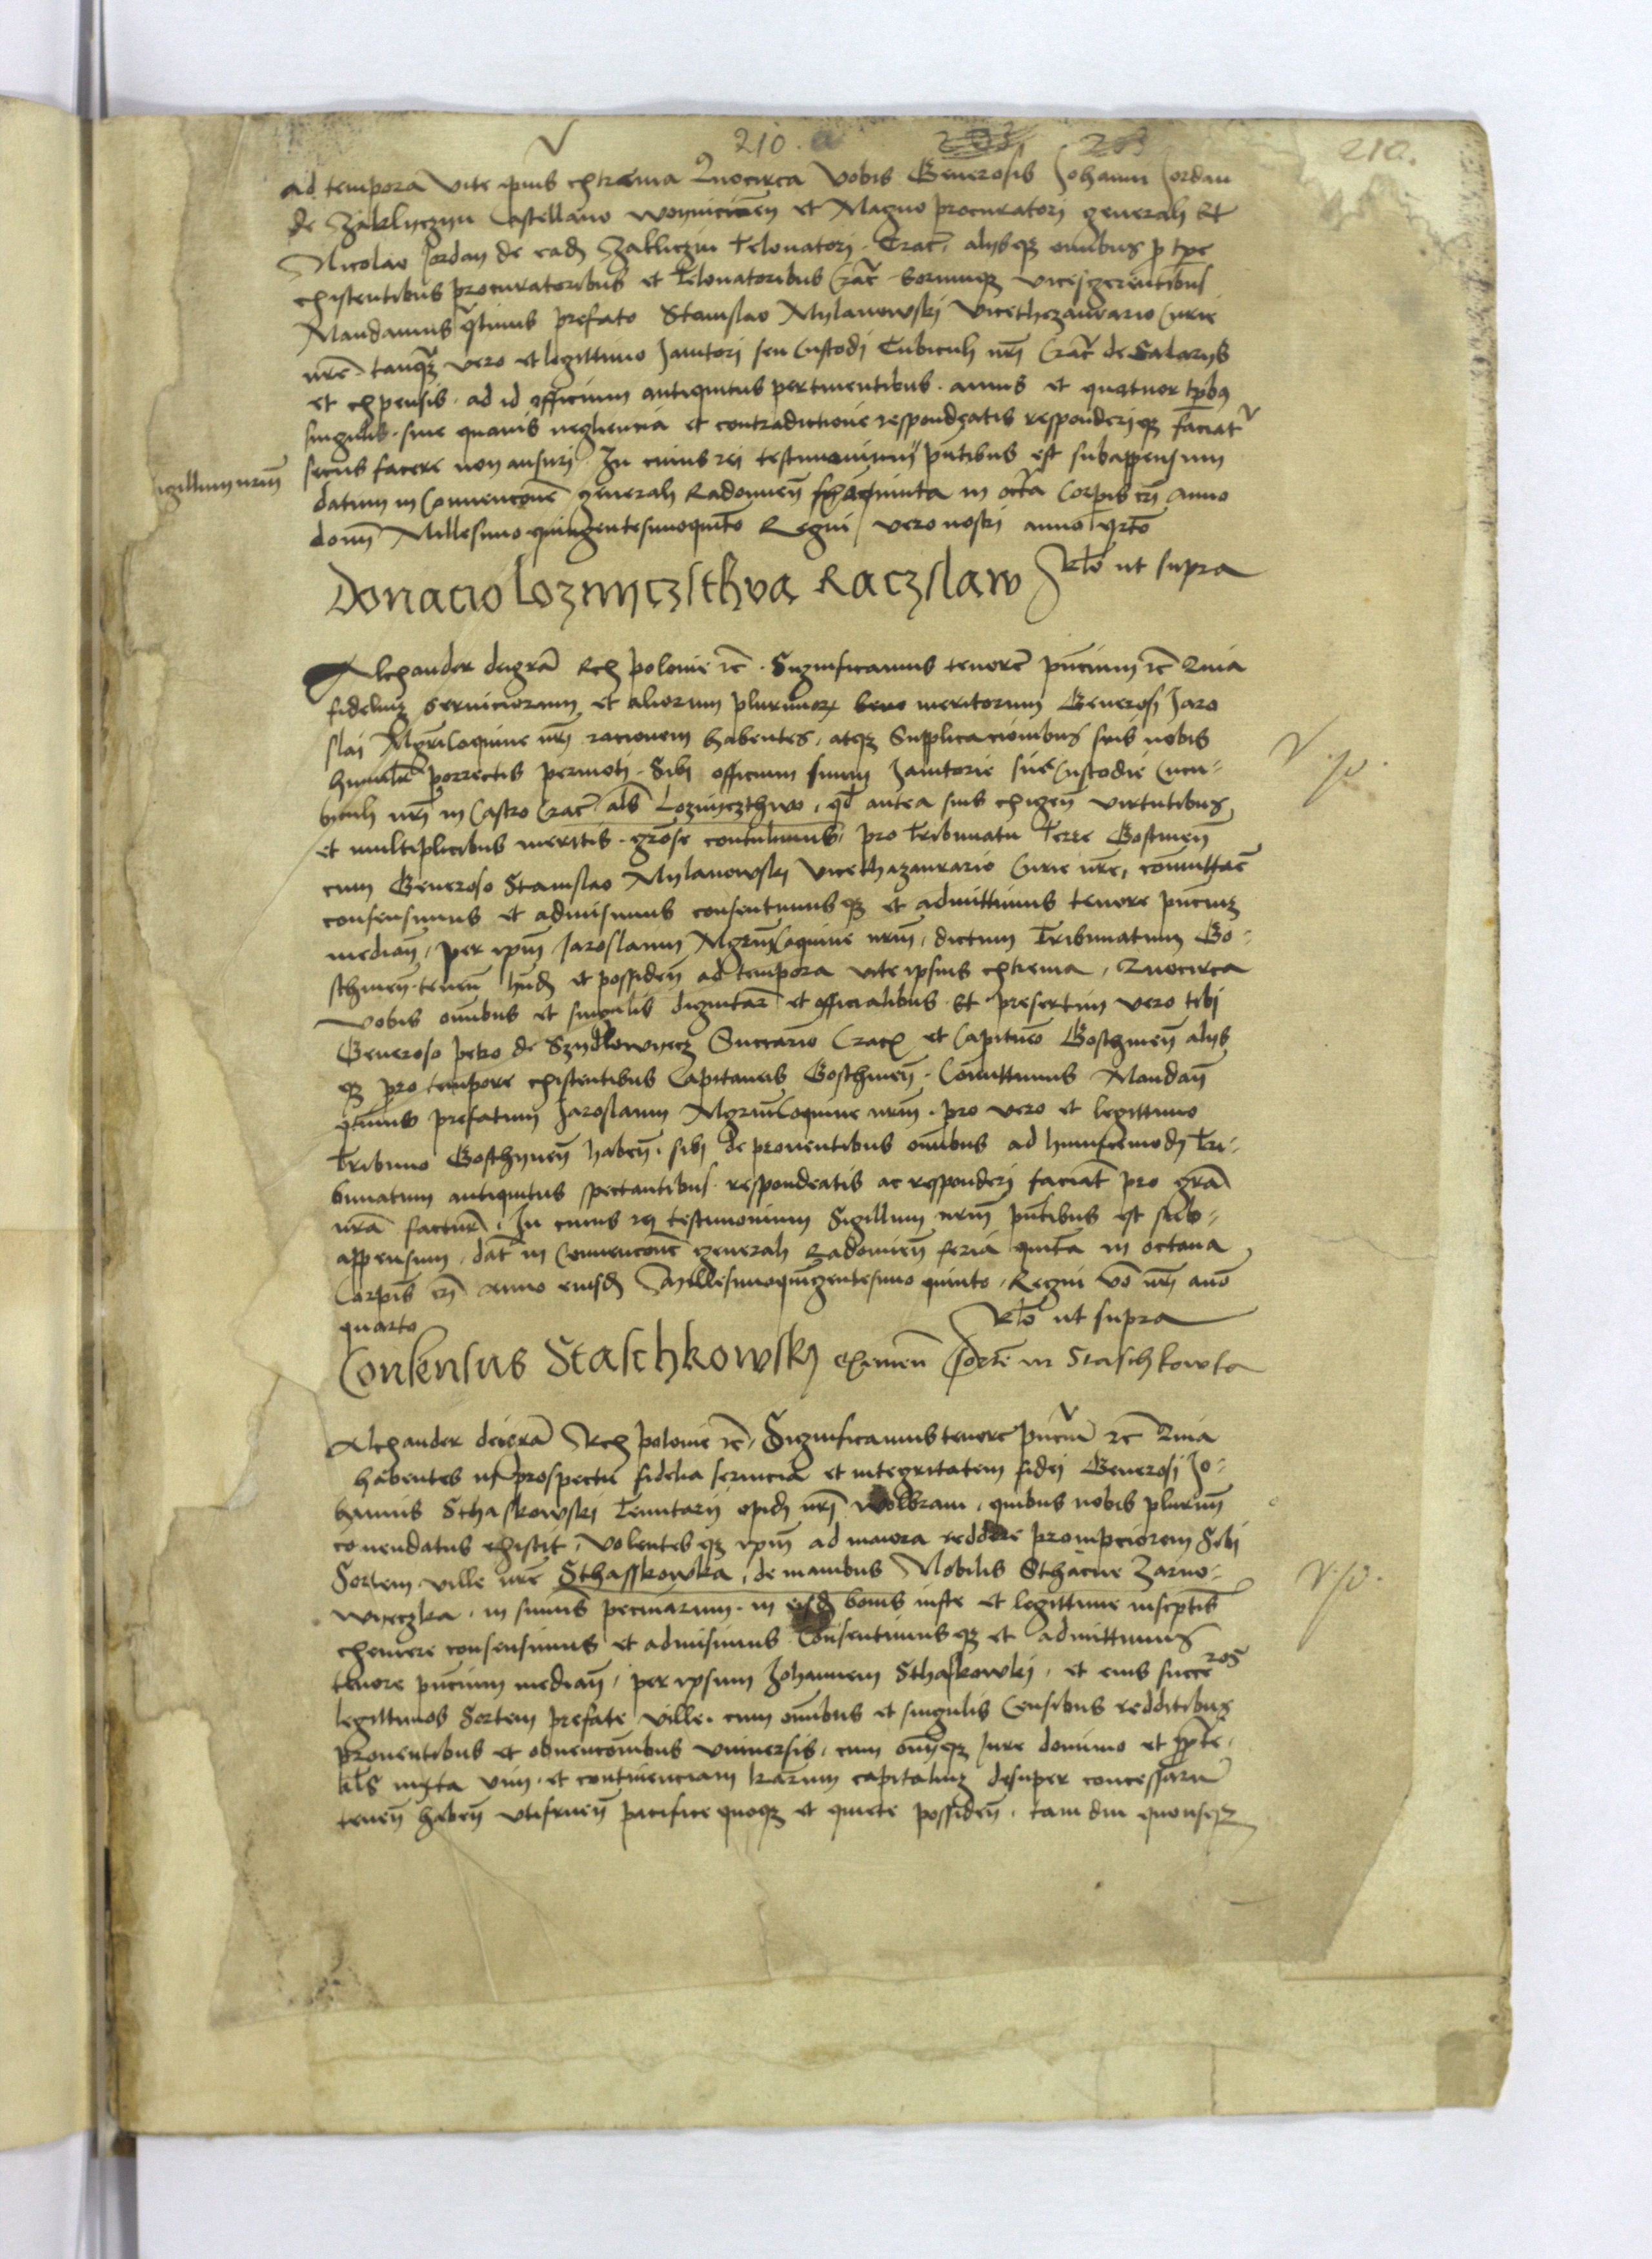 210. 203 203 210.
ad tempora vite ipius extrema Quocirca Vobis Generosis Johanni Jordan
de Zaklyczyn Castellano woynicien et Magno procuratori generali Et
Nicolao Jordan de ead Zakliczin Telonatori Crac alysq omibus p tpe
existentibus procuratoribus et Telonatoribus Crac eorumq vicesgerentibus
Mandamus qtinus prefato Stanislao Mylanowskj Vicethezaurario Curie
nre tanq vero et legittimo Janitori seu Custodj Cubiculi nrj Crac de Salarys
et expensis ad id officium antiquitus pertinentibus annis et quatuor tpibus
singulis sine quauis negliencia et contradictione respondeatis responderiq faciat
secus facere non ausuri In cuius rej testimonium pntibus est subappensum
sigillum nrum
datum in Conuencone generali Radomien quinta in octa Corpis cri Anno
domi Millesimo quingentesimoquinto Regni vero nostri anno qrto
Donacio Loznyczsthva Raczslaw Rlo ut supra
Alexander dei gra Rex polonie rc Significamus tenore pncium rc Quia
fidelium seruiciorum et aliorum plurimor bene meritorum Generosj Jaro
slai racionem habentes atq Supplicacionibus suis nobis
humilr porrectis permoti Sibj officium suum Janitorie siue Custodie Cucu-
biculi nrj in Castro Crac als Loznyczthwo qd antea suis exigen virtutibus
et multiplicibus meritis grose contulimus pro Tribunatu Terre Gostinen
cum Generoso Stanislao Mylanowskj Vicethezaurario Curie nre comuttare
consensimus et admisimus consentimusq et admittimus tenore pncium
median per ipm Jaroslaum nrum dictum Tribunatum Go-
sthinen tenen hnd et possiden ad tempora vite ipsius extrema Quocirca
Vobis omibus et singulis dignitar et officialibus Et presertim vero tibj
Generoso petro de Szydlowyecz Succario Crac et Capitneo Gosthinen alys
q pro tempore existentibus Capitaneis Gosthinen Comittimus Mandan
qtinus prefatum Jaroslaum nrum pro vero et legittimo
Tribuno Gosthynen haben sibj de prouentibus omibus ad huiuscemodj Tri-
bunatum antiquitus spectantibus respondeatis ac responderj faciat pro gra
nra factur In cuius rej testimonium Sigillum nrum pntibus est sub-
appensum dat in Conuencone generali Radomien feria quinta in octaua
Corpis cri Anno eiusd Millesimoquingentesimo quinto Regni vo nri ano
quarto Rlo ut supra
Consensus Staschkowskj eximen sorte in Staschkowka
Alexander dei gra Rex polonie rc Significamus tenore pncium rc Quia
habentes prospectu fidelia seruicia et integritatem fidej Generosj Jo-
hannis Sthaskowskj Tenutarij opid nrj Wolbram quibus nobis plurimum
comendatus existit Volentesq ipm ad maiora reddere prompciorem Sibj
Sortem ville nre Sthasskowka de manibus Nobilis Sthacne Zarno-
wyeczka in sumis pecuniarum in eisd bonis iuste et legittime inscptis
eximere consensimus et admisimus Consentimusq et admittimus
tenore pncium median per ipsum Johannem Sthaskowskj et eius succe
res
legittimos Sortem prefate ville cum omibus et singulis Censibus redditibus
prouentibus et obuenconibus vniuersis cum oniq Jure dominio et
iuxta vim et continenciam lrarum capitalium desuper concessaru
tenen haben vtifruen pacifice quoq et quiete possiden tam diu quousq